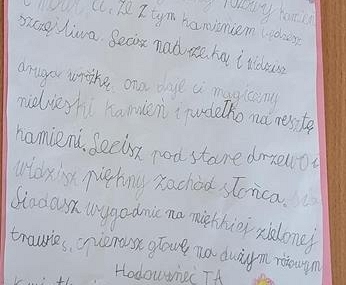 ci, że z tym kamieniem będziesz
szczęśliwa. Lecisz nad rzeką i widzisz
drugą wróżkę, ona daje ci magiczny
niebieski kamień i pudełko na resztę
kamieni. Lecisz pod stare drzewo i
widzisz piękny zachód słońca.
Siadasz wygodnie na miękkiej zielonej
trawie, opierasz głowę na dużym różowym